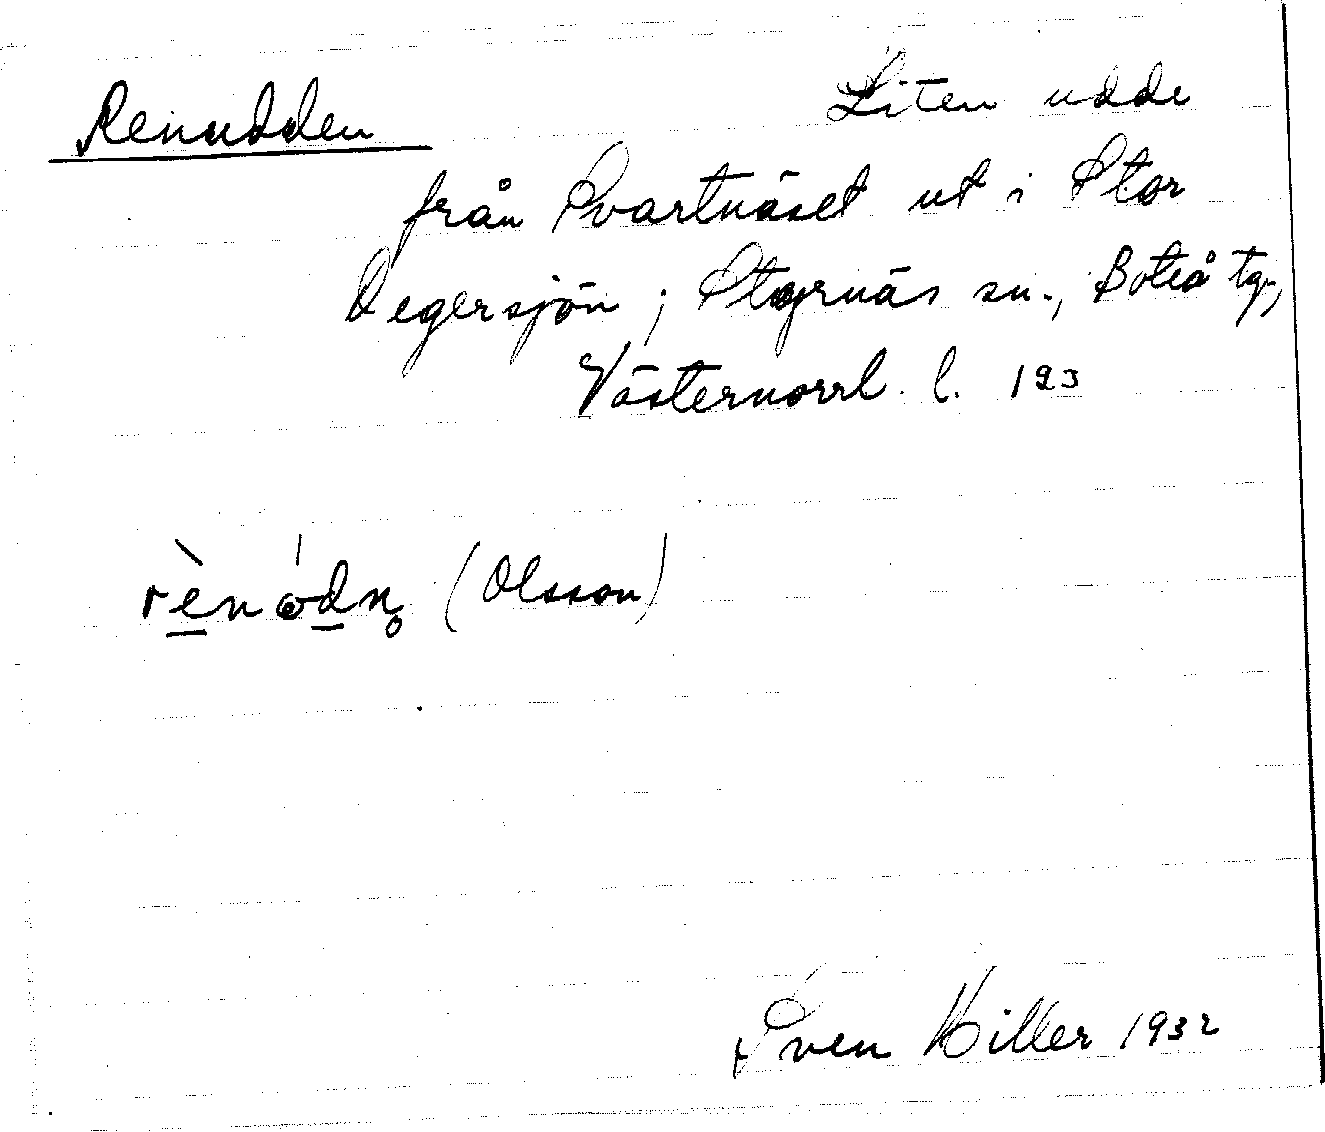 Renudden
Liten udde
från Svartnäset ut i Stor
Degersjön; Skornäs sn., Boteå tg.,
Västernorrl. l. 193
rènódn̥ (Olsson)
Sven Hiller 1932